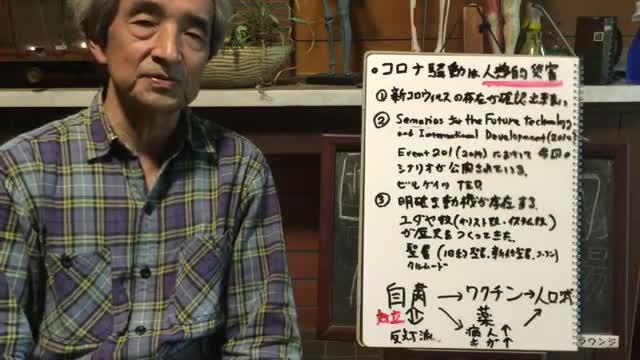 ・コロナ騒動は人為的災害
① 新コロウィルスの存在が確認出来ない。
② Senarios for the Future technology
and International Development (2010)
Event 201 (2019) において 今回の
シナリオが公開されている。
ビルゲイツ TED
③ 明確な動機が存在する。
ユダヤ教 (キリスト教・イスラム教)
が歴史をつくってきた。
聖書 (旧約聖書、新約聖書、コーラン)
タルムード
自粛 → ワクチン → 人口減
対立 薬
反対派 病人↑
ラウンジ